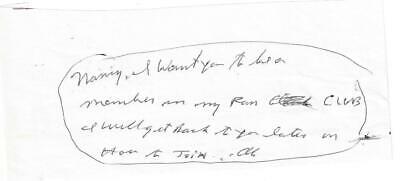 Nancy, I want you to be a
member in my Fan CLUB
I will get Back to you later on
How to Join..